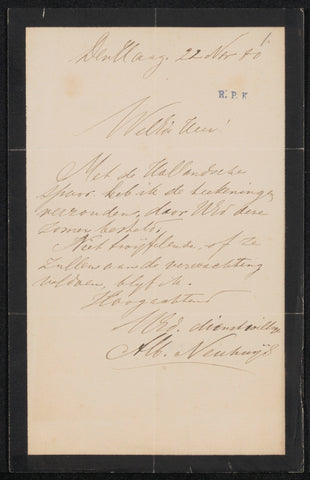 Den Haag. 22 Nov 80
R. P. K
WelEd. Heer!
Met de Hollandsche
spoor heb ik de teekeningen
verzonden, door UEd deze
zomer besteld.
Niet twijffelende, of ze
zullen aan de verwachting
voldoen, blijf ik.
Hoogachtend
UEd. dienstwillige
Alb. Neuhuijs